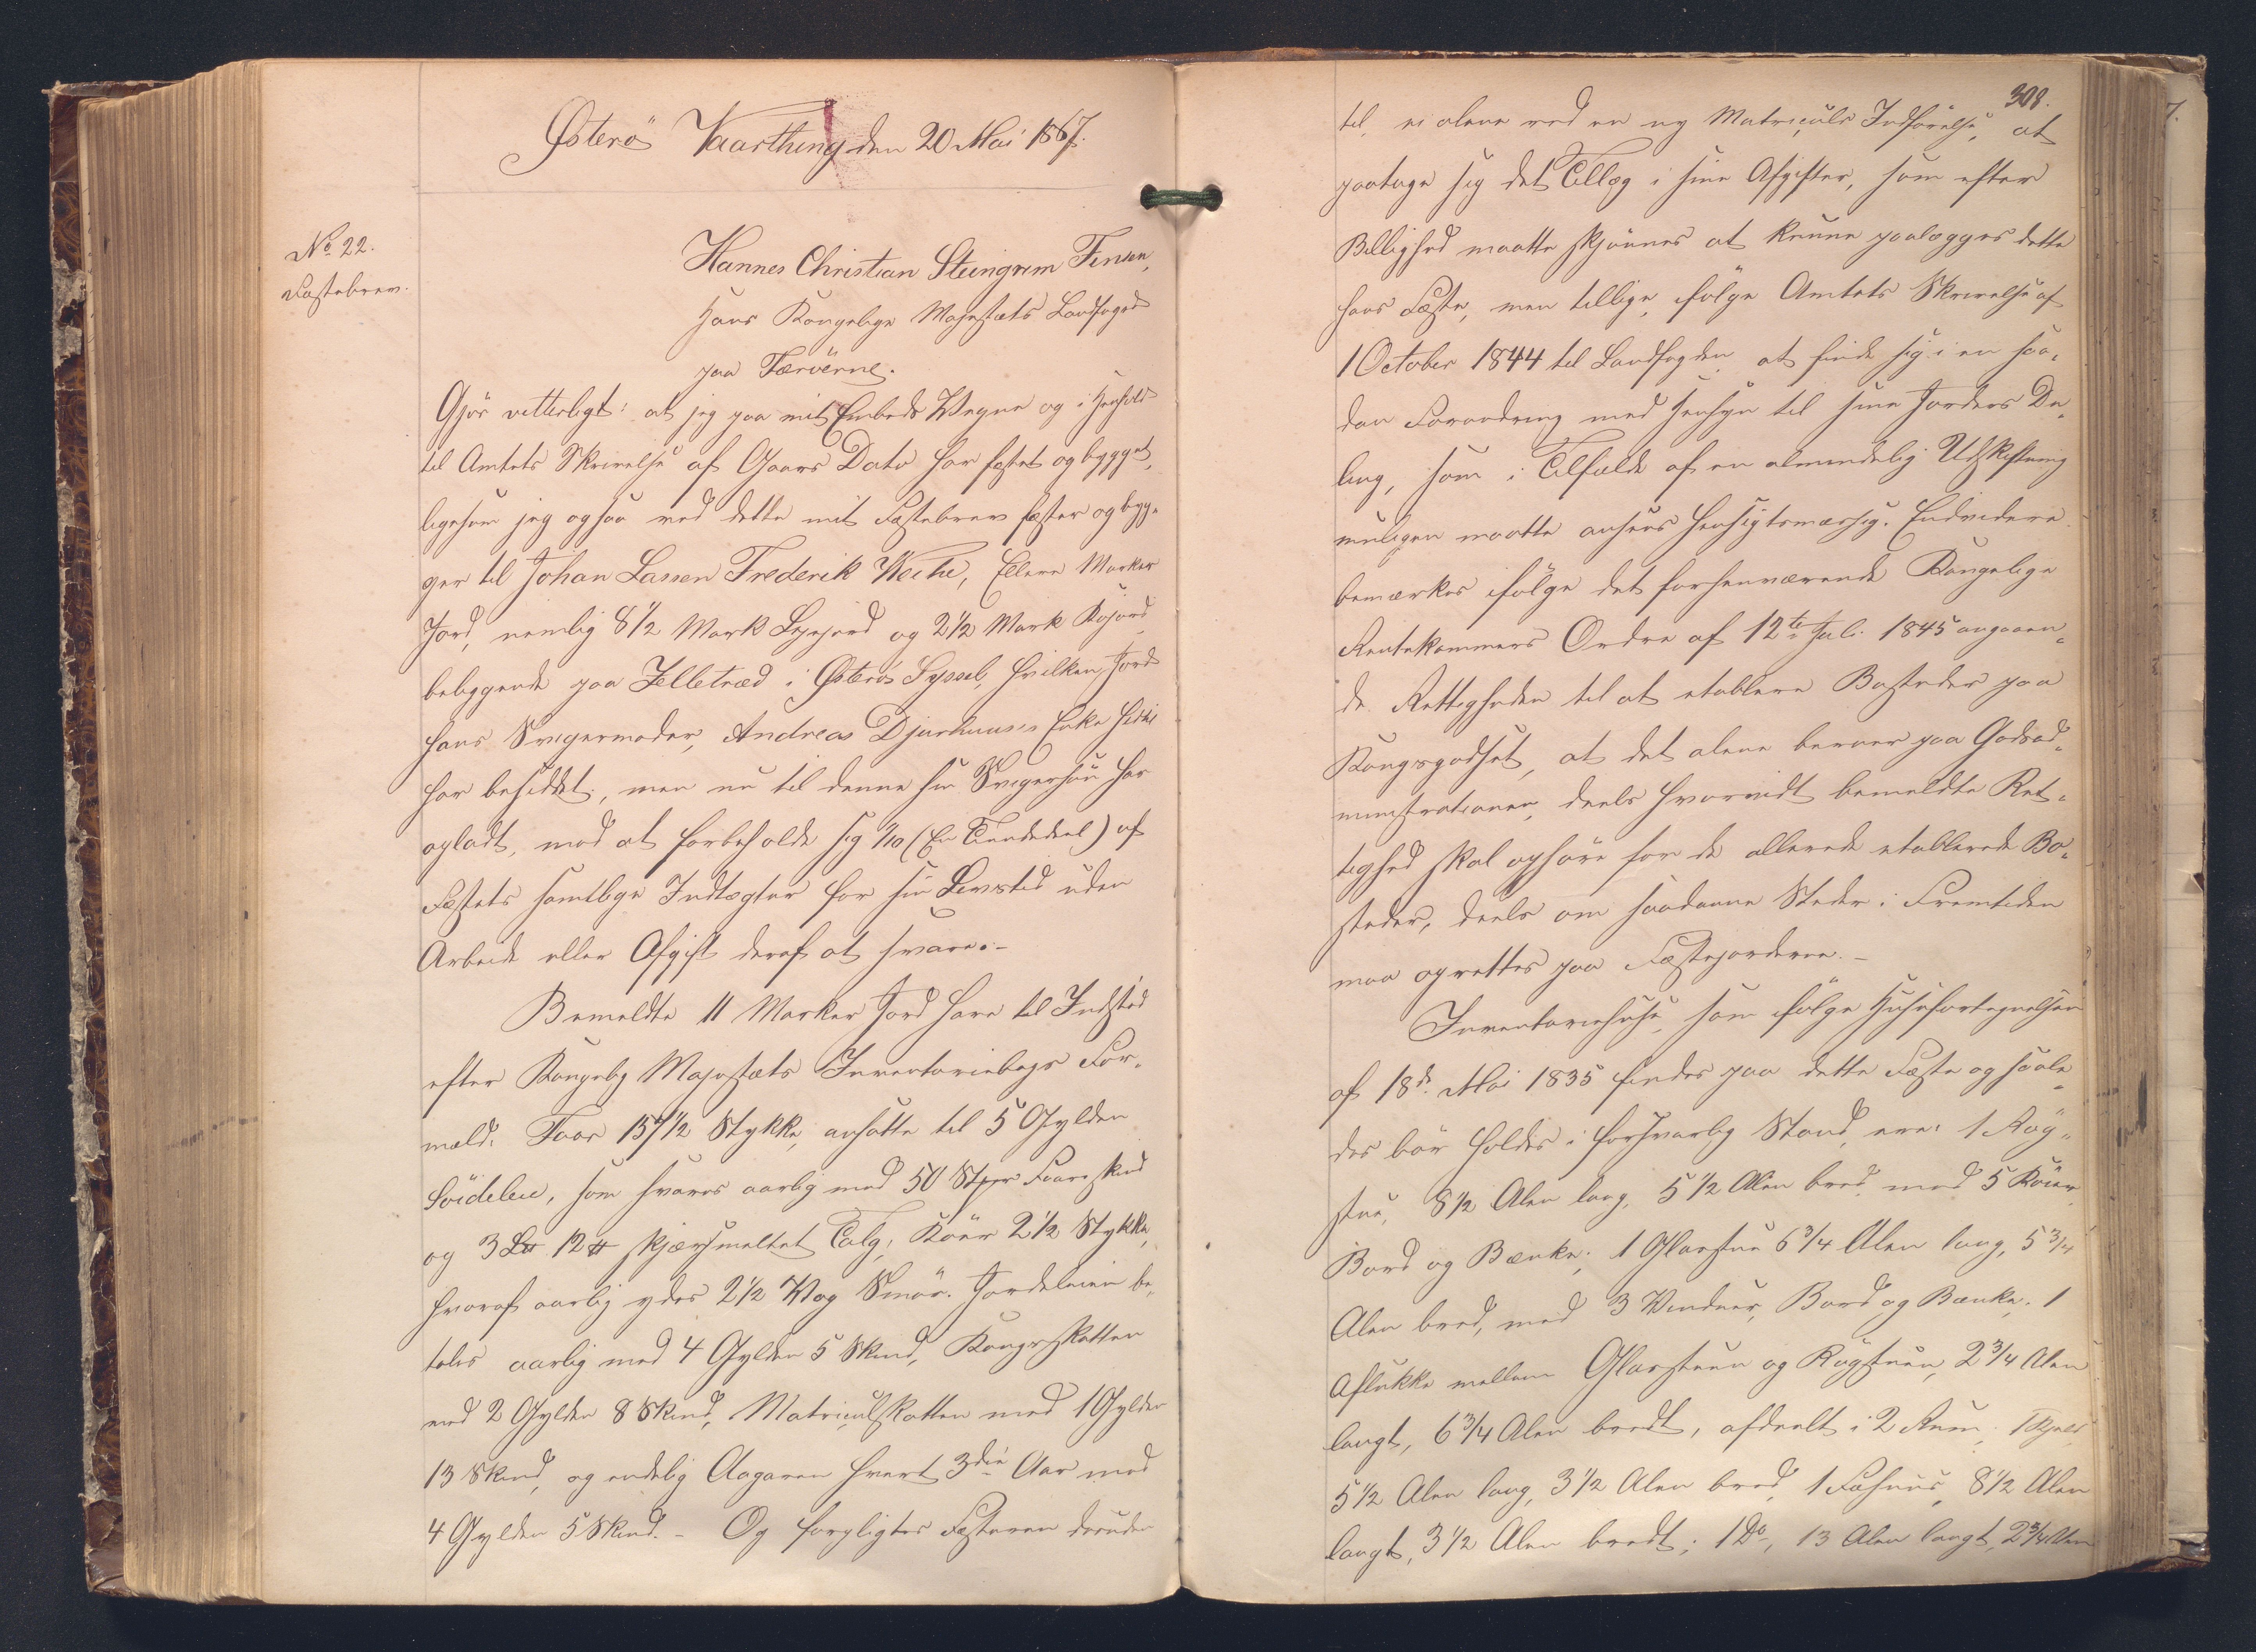 Østerö Vaarthing den 20 Mai 1867.
No 22.
Fæstebrev.
Hannes Christian Steingrim Finsen,
Hans Kongelige Majestæts Landfoged
paa Færöerne.
Gjör vitterligt: at jeg paa mit Embeds Vegne og i Henhold
til Amtets Skrivelse af Gaars Dato har fæstet og bygget,
ligesom jeg ogsaa ved dette mit Fæstebrev fæster og byg-
ger til Johan Lassen Frederik Weihe, Elleve Marker
Jord, nemlig 8 1/2 Mark Leiejord og 2 1/2 Mark Kojord
beliggende paa Zelletræd i Østerös Syssel, hvilken Jord
hans Svigermoder, Andreas Djurhuuses Enke hidtil
har besiddet, men nu til denne sin Svigersön har
opladt, mod at forbeholde sig 1/10 (En Tiendedeel) af
Fæstets samtlige Indtægter for sin Livstid uden
Arbeide eller Afgift deraf at svare.-
Bemeldte 11 Marker Jord have til Indsted
efter Kongelig Majestæts Inventariebogs For-
meld: Faar 157 1/2 Stykke, ansatte til 5 Gylden
Söideleie, som svares aarlig med 50 Stkr Faareskind
og 3 L℔ 12 ℔ skjærsmeltet Talg; Köer 2 1/2 Stykke,
hvoraf aarlig ydes 2 1/2 Vog Smör. Jordeleien be-
tales aarlig med 4 Gylden 5 Skind, Kongsskatten
med 2 Gylden 8 Skind, Matriculskatten med 1 Gylden
13 Skind, og endelig Aagaven hvert 3die Aar med
4 Gylden 5 Skind. - Og forpligtes Fæsteren desuden
308.
til, ei alene ved en ny Matriculs Indförelse, at
paatage sig det Tillæg i sine Afgifter, som efter
Billighed maatte skjönnes at kunne paalægges dette
hans Fæste, men tillige, ifölge Amtets Skrivelse af
1 October 1844 til Landfogden at finde sig i en saa-
dan Forandring med Hensyn til sine Jorders De-
ling, som i Tilfælde af en almindelig Udskiftning
muligen maatte ansees hensigtsmæssig. Endvidere
bemærkes ifölge det forhenværende Kongelige
Rentekammers Ordre af 12te Juli 1845 angaaen-
de Rettigheden til at etablere Bosteder paa
Kongsgodset, at det alene beroer paa Godsad-
ministrationen, deels hvorvidt bemeldte Ret-
tighed skal ophöre for de allerede etablerede Bo-
steder, deels om saadanne Steder i Fremtiden
maa oprettes paa Fæstejorderne.-
Inventariehuse, som ifölge Huusfortegnelsen
af 18de Mai 1835 findes paa dette Fæste og saale-
des bör holdes i forsvarlig Stand, ere: 1 Rög-
stue, 8 1/2 Alen lang, 5 1/2 Alen bred, med 5 Köier,
Bord og Bænke; 1 Glasstue 6 3/4 Alen lang, 5 3/4
Alen bred, med 3 Vinduer, Bord og Bænke; 1
Aflukke mellem Glasstuen og Rögstuen, 2 3/4 Alen
langt, 6 3/4 Alen bredt, afdeelt i 2 Rum; 1 Hjald
5 1/2 Alen lang, 3 1/2 Alen bred, 1 Fæhuus, 8 1/2 Alen
langt, 3 1/2 Alen bredt; 1 Do, 13 Alen langt, 2 3/4 Alen